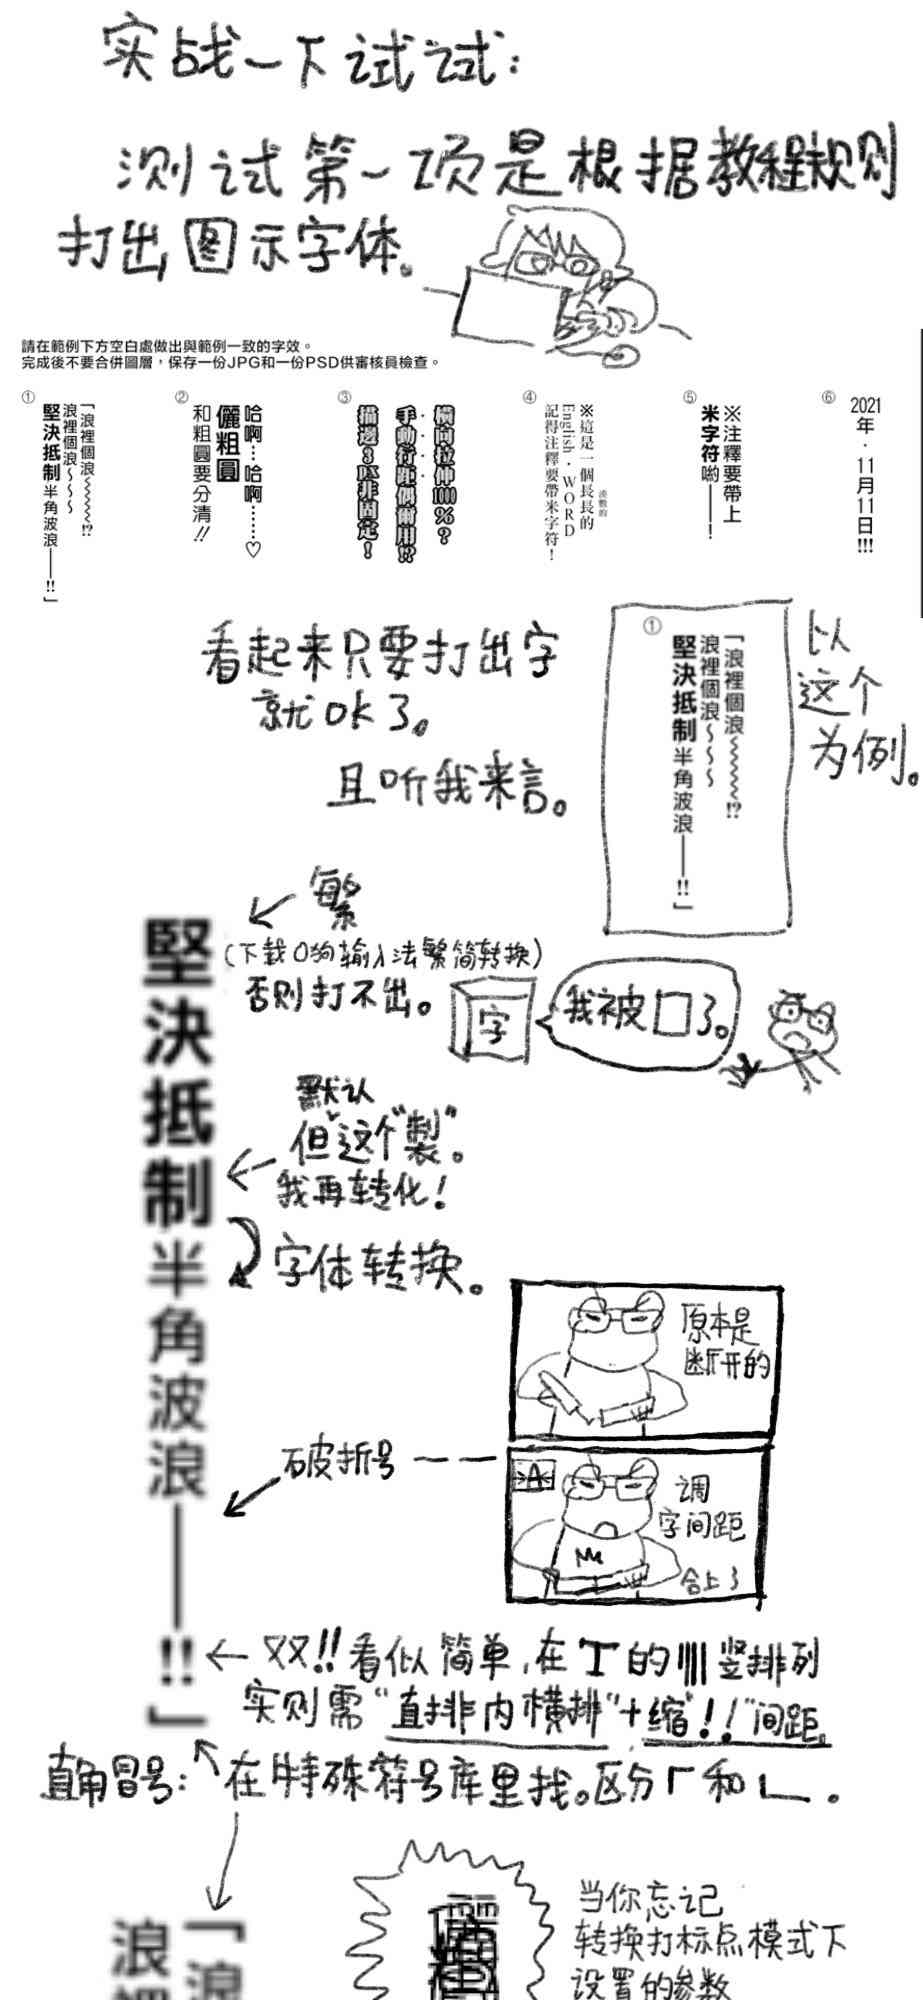 实战一下试试:
测试第一项是根据教程规则
打出图示字体。
請在範例下方空白處做出與範例一致的字效。
完成後不要合併圖層，保存一份JPG和一份PSD供審核員檢查。
①
「浪裡個浪~~~~~!?
浪裡個浪～～～
堅決抵制半角波浪——!!」
②
哈啊…哈啊……♡
儷粗圓
和粗圓要分清!!
③
橫向拉伸1000%？
手動行距偶爾用!?
描邊3PX非固定！
④
※這是一個長長的
English・WORD
記得注釋要帶米字符！
⑤
※注釋要帶上
米字符喲——！
⑥
2021年．11月11日!!!
看起来只要打出字
就OK了。
且听我来言。
①
「浪裡個浪~~~~~!?
浪裡個浪～～～
堅決抵制半角波浪——!!」
以
这个
为例。
堅決抵制半角波浪——!!」
繁
(下载O狗输入法繁简转换)
否则打不出。
字
我被囗了。
默认
但这个"製"。
我再转化!
字体转换。
原本是
断开的
破折号——
A
调
字间距
合上了
双!!看似简单,在T的||||竖排列
实则需"直排内横排"+缩"!!"间距。
直角冒号:在特殊符号库里找。区分「和」.
「浪
浪裡
当你忘记
转换打标点模式下
设置的参数